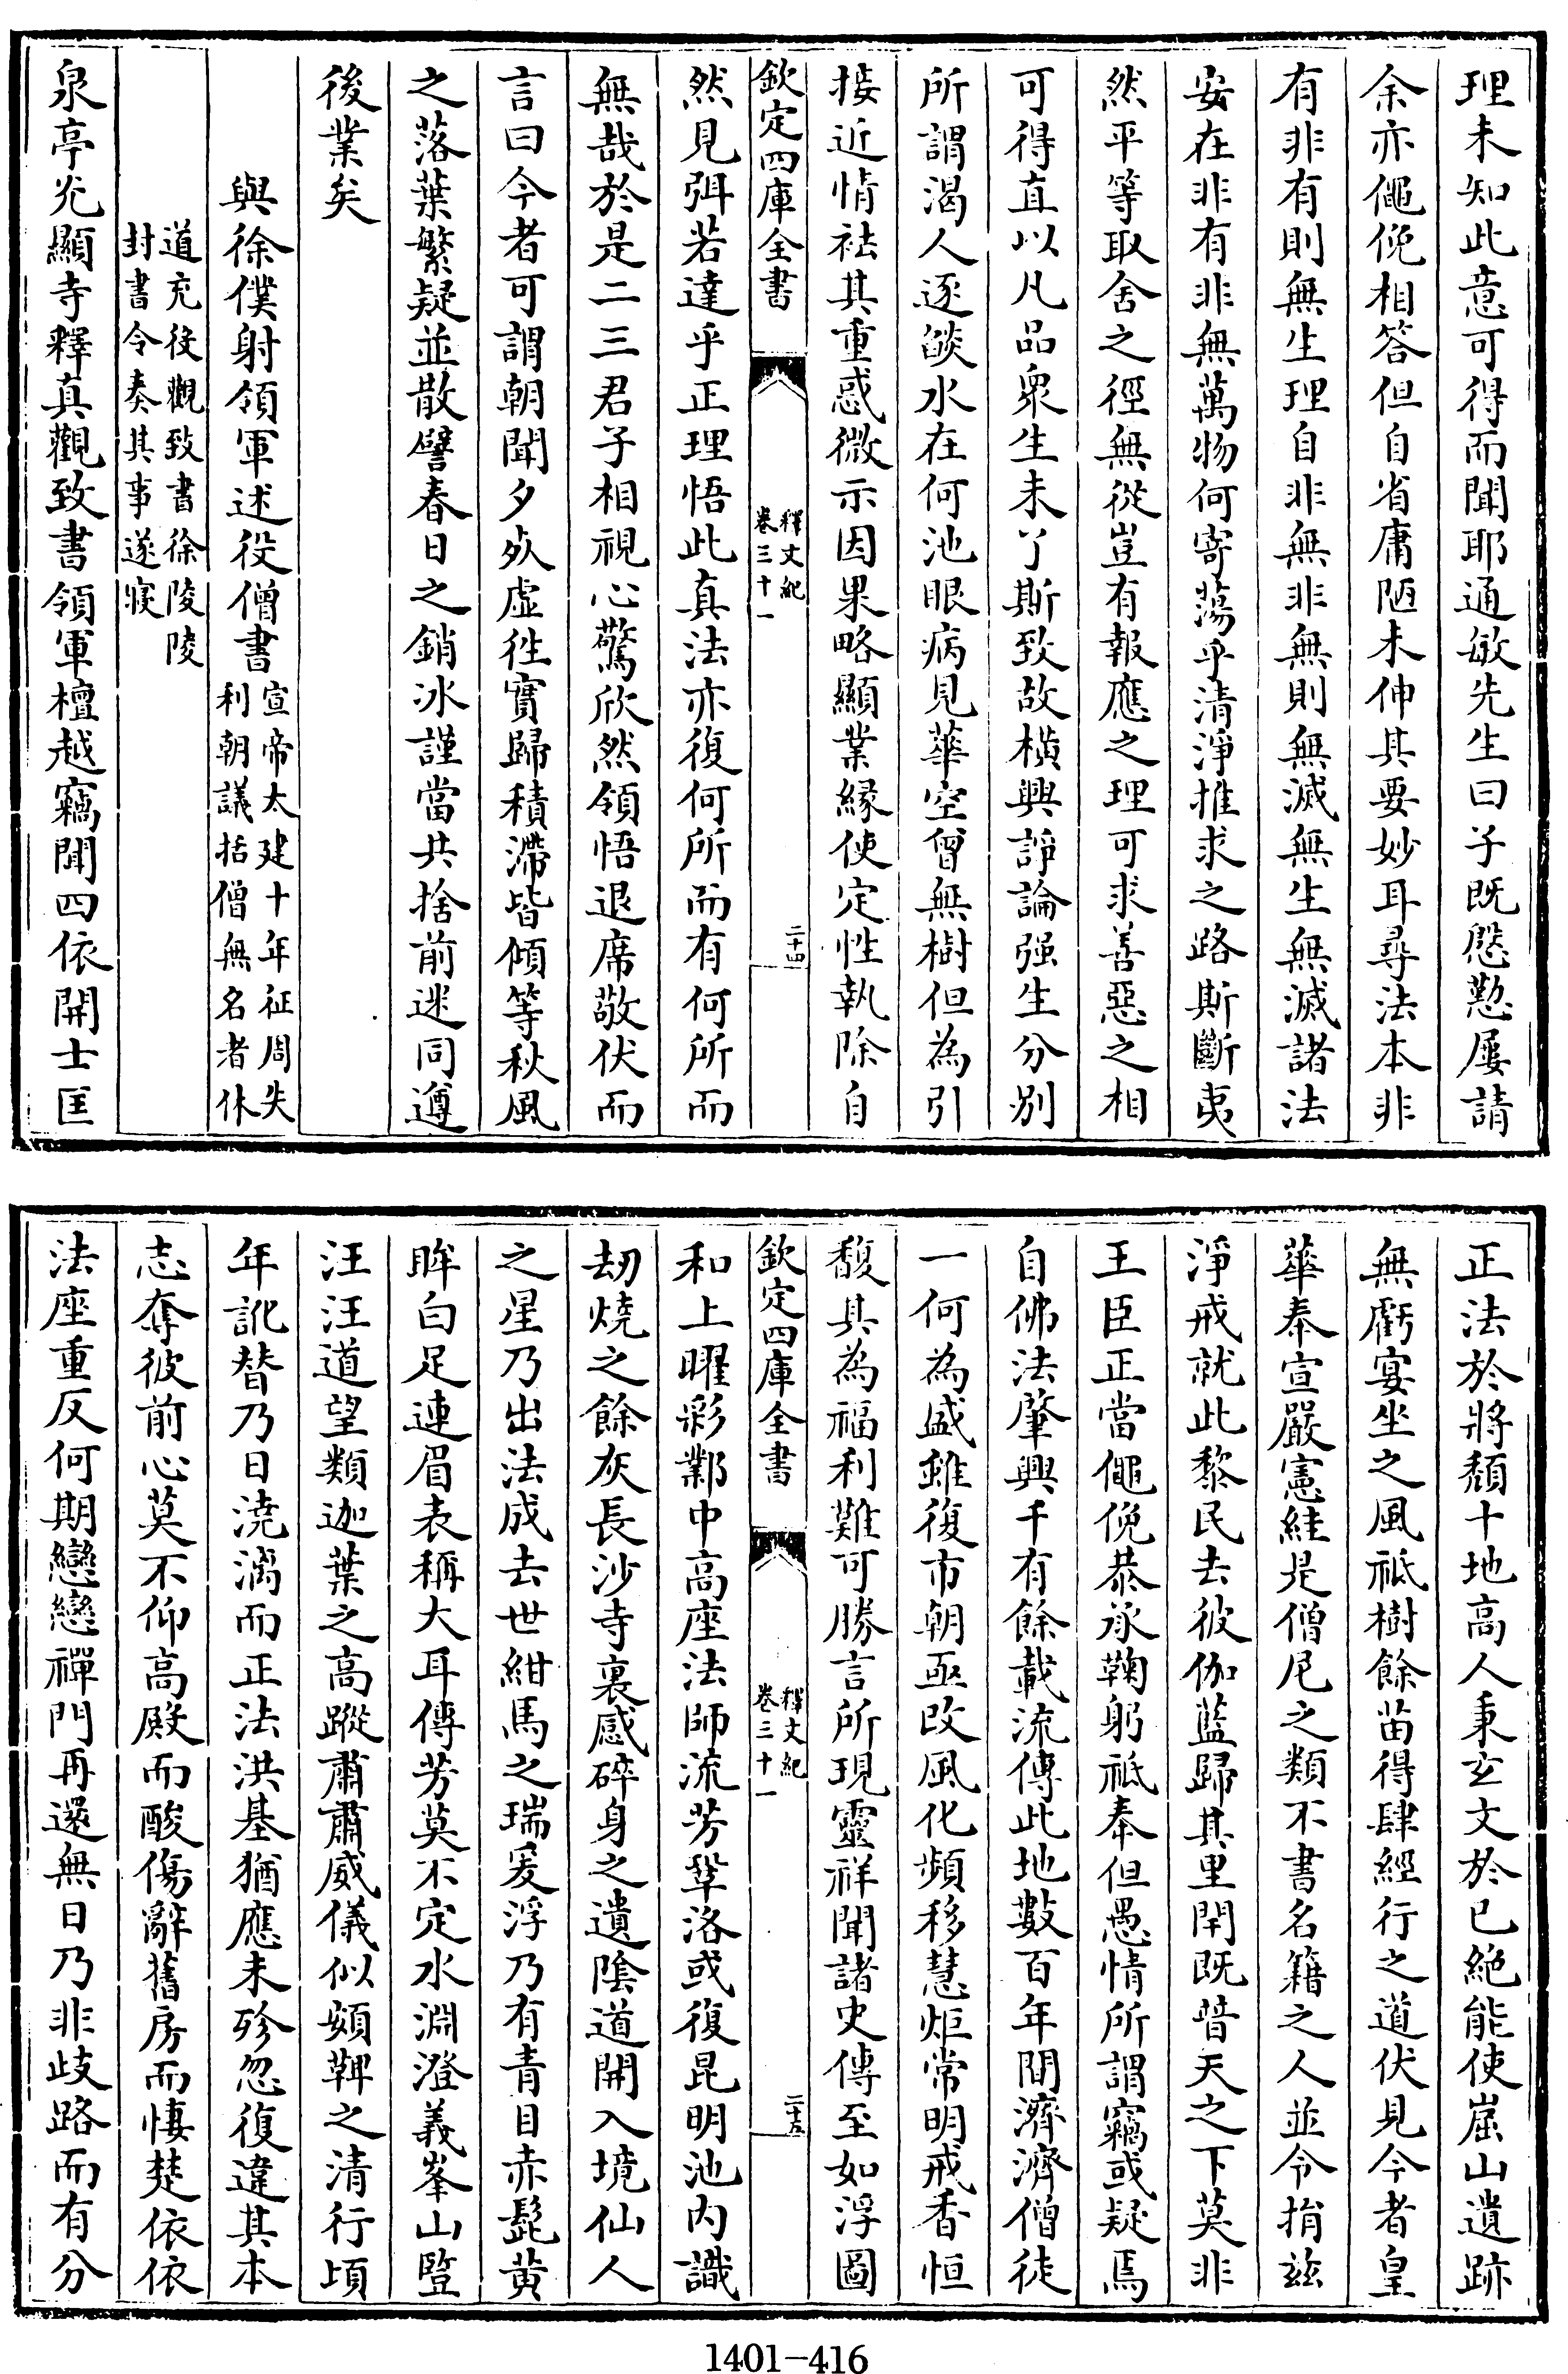 理未知此意可得而聞耶通敏先生曰子既慇懃屢請
余亦僶俛相答但自省庸陋未伸其要妙耳尋法本非
有非有則無生理自非無非無則無滅無生無滅諸法
安在非有非無萬物何寄蕩乎清淨推求之路斯斷夷
然平等取舍之徑無從豈有報應之理可求善惡之相
可得直以凡品衆生未了斯致故横興諍論强生分别
所謂渴人逐燄水在何池眼病見華空曾無樹但為引
接近情袪其重惑微示因果略顯業緣使定性執除自
欽定四庫全書
釋文紀
卷三十一
二十四
然見弭若達乎正理悟此真法亦復何所而有何所而
無哉於是二三君子相視心驚欣然領悟退席敬伏而
言曰今者可謂朝聞夕殀虚徃實歸積滯皆傾等秋風
之落葉繁疑並散譬春日之銷冰謹當共捨前迷同遵
後業矣
與徐僕射領軍述役僧書宣帝太建十年征周失
利朝議括僧無名者休
道充役觀致書徐陵陵
封書令奏其事遂寢
泉亭光顯寺釋真觀致書領軍檀越竊聞四依開士匡
正法於將頽十地高人秉玄文於已絶能使崫山遺跡
無虧宴坐之風祇樹餘苗得肆經行之道伏見今者皇
華奉宣嚴憲絓是僧尼之類不書名籍之人並令捐兹
淨戒就此黎民去彼伽藍歸其里閈既普天之下莫非
王臣正當僶俛恭承鞠躬祇奉但愚情所謂竊或疑焉
自佛法肇興千有餘載流傳此地數百年間濟濟僧徒
一何為盛雖復市朝亟改風化頻移慧炬常明戒香恒
馥其為福利難可勝言所現靈祥聞諸史傳至如浮圖
欽定四庫全書
釋文紀
卷三十一
二十五
和上曜彩鄴中高座法師流芳鞏洛或復昆明池内識
刼燒之餘灰長沙寺裏感碎身之遺陰道開入境仙人
之星乃出法成去世紺馬之瑞爰浮乃有青目赤髭黄
眸白足連眉表稱大耳傳芳莫不定水淵澄義峯山豎
汪汪道望類迦葉之高蹤肅肅威儀似頞鞞之清行頃
年訛替乃日澆漓而正法洪基猶應未殄忽復違其本
志奪彼前心莫不仰高殿而酸傷辭舊房而悽楚依依
法座重反何期戀戀禪門再還無日乃非歧路而有分
1401-416